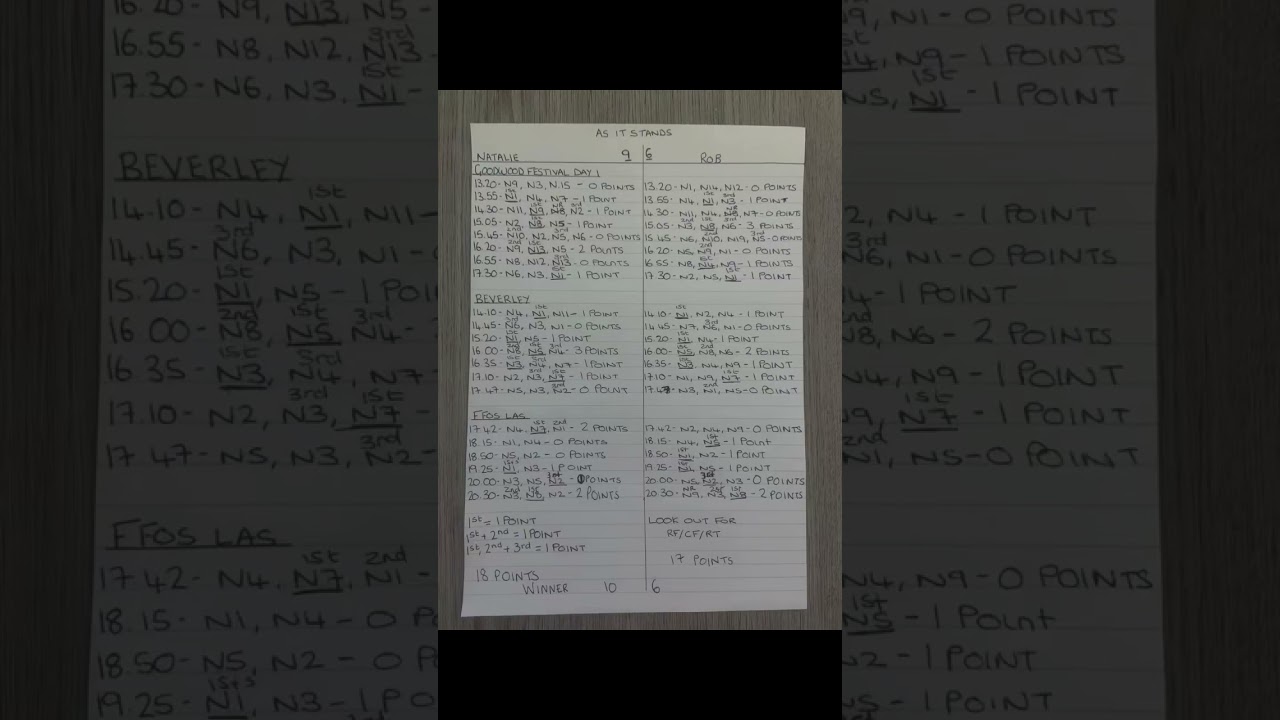 AS IT STANDS
NATALIE 9 6 ROB
GOODWOOD FESTIVAL DAY 1
13.20- N9, N3, N15 - 0 POINTS
13.55- N1, N4, N7 - 1 POINT
14.30- N11, N9, N8, N2 - 1 POINT
15.05- N2, N8, N5 - 1 POINT
15.45- N10, N2, N5, N6 - 0 POINTS
16.20- N9, N13, N5 - 2 POINTS
16.55- N8, N12, N13 - 0 POINTS
17.30- N6, N3, N1 - 1 POINT
13.20- N1, N14, N12 - 0 POINTS
13.55- N4, N1, N3 - 1 POINT
14.30- N11, N4, N8, N7 - 0 POINTS
15.05- N3, N8, N6 - 3 POINTS
15.45- N6, N10, N19, N5 - 0 POINTS
16.20- N5, N9, N1 - 0 POINTS
16.55- N8, N14, N9 - 1 POINT
17.30- N2, N5, N1 - 1 POINT
BEVERLEY
14.10- N4, N1, N11 - 1 POINT
14.45- N6, N3, N1 - 0 POINTS
15.20- N1, N5 - 1 POINT
16.00- N8, N5, N4 - 3 POINTS
16.35- N3, N4, N7 - 1 POINT
17.10- N2, N3, N7 - 1 POINT
17.47- N5, N3, N2 - 0 POINT
14.10- N1, N2, N4 - 1 POINT
14.45- N7, N6, N1 - 0 POINTS
15.20- N1, N4 - 1 POINT
16.00- N5, N8, N6 - 2 POINTS
16.35- N3, N4, N9 - 1 POINT
17.10- N1, N9, N7 - 1 POINT
17.47- N3, N1, N5 - 0 POINT
FFOS LAS
17.42- N4, N7, N1 - 2 POINTS
18.15- N1, N4 - 0 POINTS
18.50- N5, N2 - 0 POINTS
19.25- N1, N3 - 1 POINT
20.00- N3, N5, N2 - 0 POINTS
20.30- N3, N8, N2 - 2 POINTS
17.42- N2, N4, N9 - 0 POINTS
18.15- N4, N5 - 1 POINT
18.50- N1, N2 - 1 POINT
19.25- N1, N5 - 1 POINT
20.00- N5, N2, N3 - 0 POINTS
20.30- N9, N3, N8 - 2 POINTS
1st = 1 POINT
1st + 2nd = 1 POINT
1st, 2nd + 3rd = 1 POINT
LOOK OUT FOR
RF/CF/RT
17 POINTS
18 POINTS
WINNER 10 6